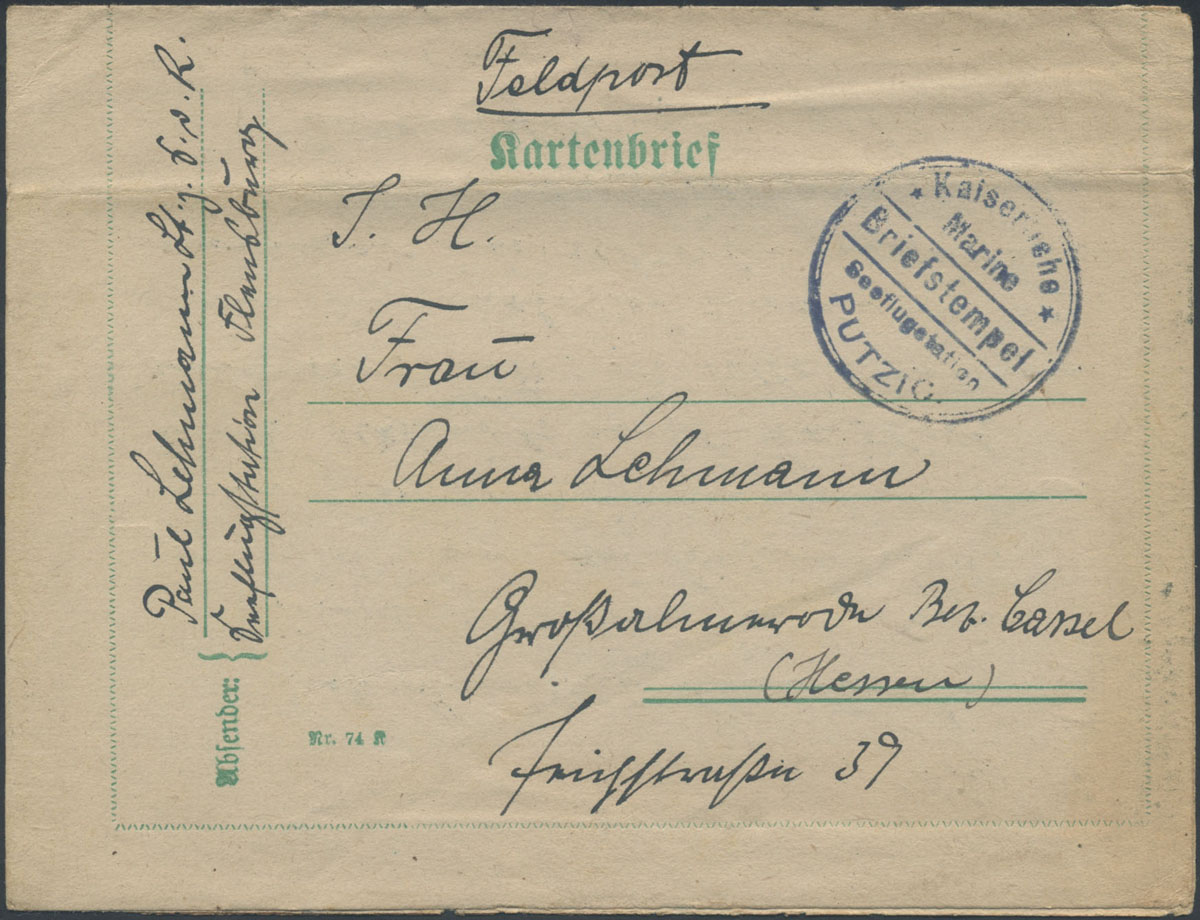 Feldpost
Kartenbrief
S. H.
Frau
Anna Lehmann
Großalmerode Bez. Cassel
(Hessen)
39
Kaiserliche
Marine
Briefstempel
Seeflugstation
PUTZIG.
Absender:
Paul Lehmann Lt. z. S. d. R.
Seeflugstation Flensburg
Nr. 74 K